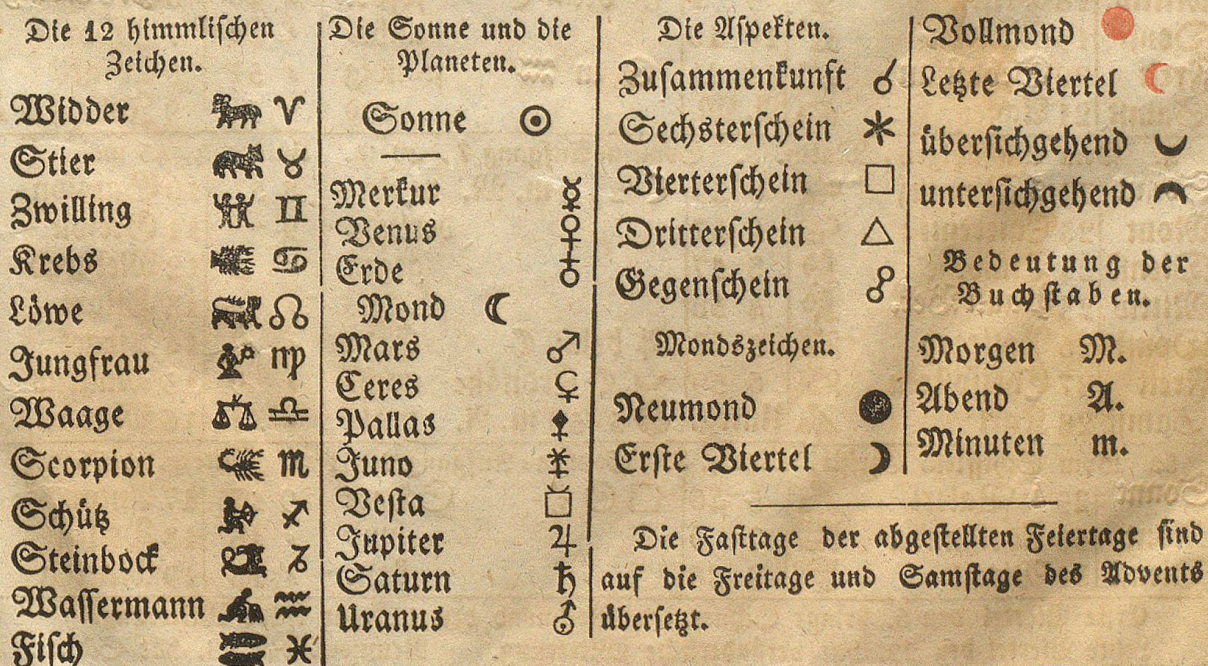 Die 12 himmlischen
Zeichen.
Widder ♈
Stier ♉
Zwilling ♊
Krebs ♋
Löwe ♌
Jungfrau ♍
Waage ♎
Scorpion ♏
Schütz ♐
Steinbock ♑
Wassermann ♒
Fisch ♓
Die Sonne und die
Planeten.
Sonne ☉
Merkur ☿
Venus ♀
Erde ♁
Mond ☾
Mars ♂
Ceres ⚳
Pallas ⚴
Juno ⚵
Vesta ⚶
Jupiter ♃
Saturn ♄
Uranus ⛢
Die Aspekten.
Zusammenkunft ☌
Sechsterschein ⚹
Vierterschein □
Dritterschein △
Gegenschein ☍
Mondszeichen.
Neumond ●
Erste Viertel ☽
Vollmond ●
Letzte Viertel ☾
übersichgehend
untersichgehend
Bedeutung der
Buchstaben.
Morgen M.
Abend A.
Minuten m.
Die Fasttage der abgestellten Feiertage sind
auf die Freitage und Samstage des Advents
übersetzt.